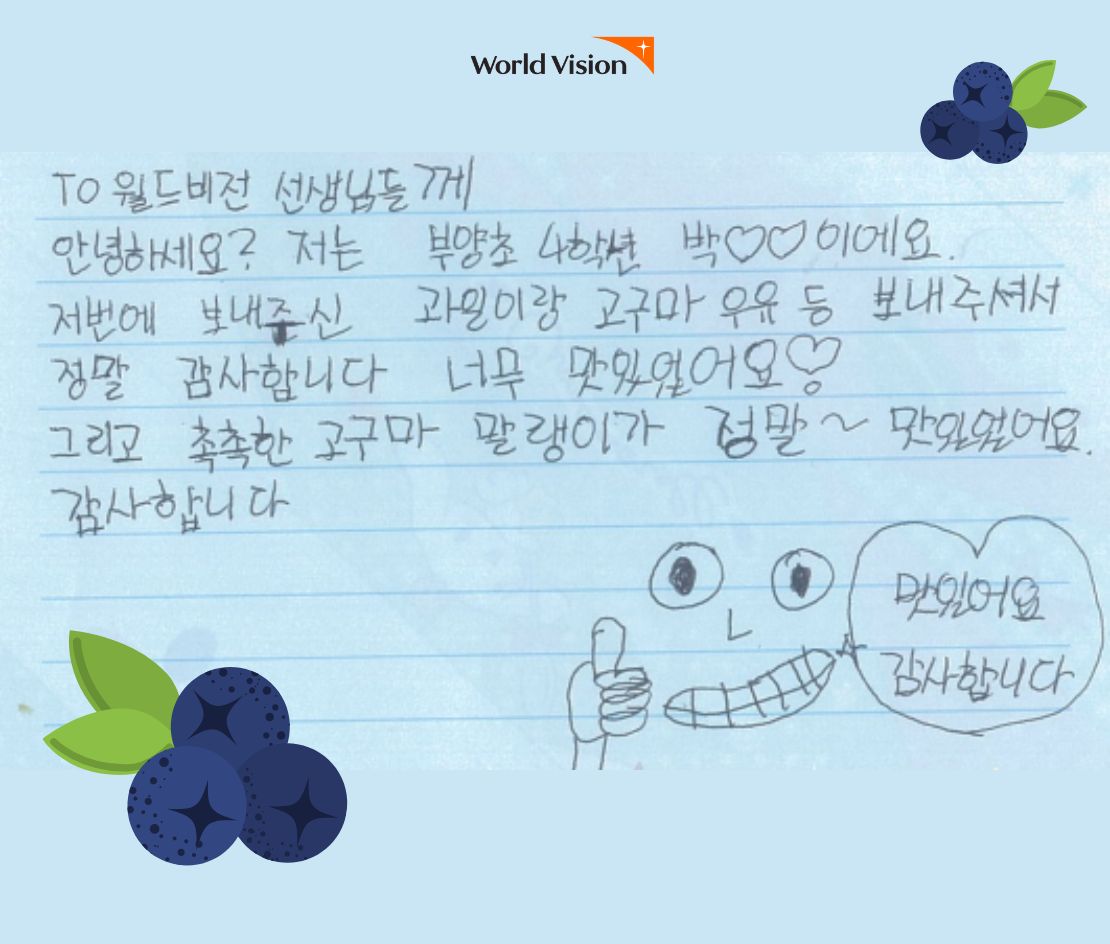 World Vision
TO 월드비전 선생님들께
안녕하세요? 저는 부양초 4학년 박♡♡이에요.
저번에 보내주신 과일이랑 고구마 우유 등 보내주셔서
정말 감사합니다 너무 맛있었어요♡
그리고 촉촉한 고구마 말랭이가 정말~ 맛있었어요.
감사합니다
맛있어요
감사합니다